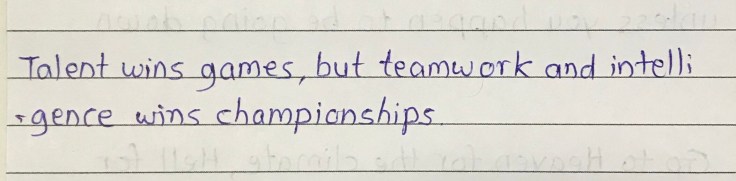 Talent wins games, but teamwork and intelli
-gence wins championships.